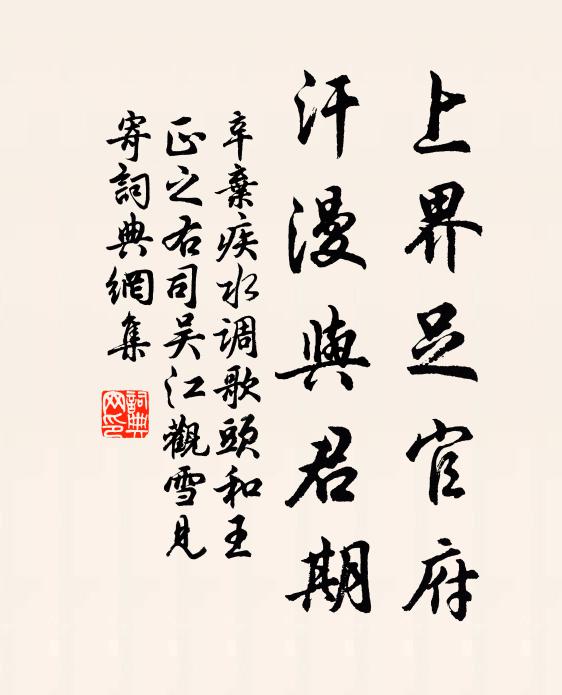 上界足官府
汗漫與君期
辛棄疾水调歌頭和王
正之右司吴江觀雪見
寄詞典網集
詞典
网印